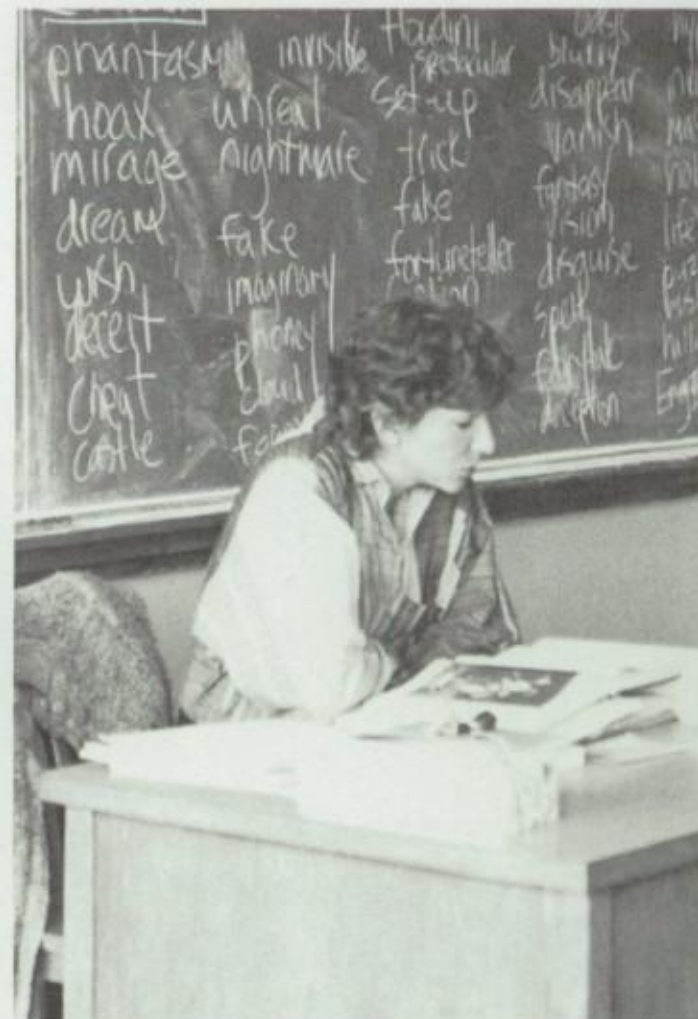 phantasm
hoax
mirage
dream
wish
deceit
cheat
castle
invisible
unreal
nightmare
fake
imaginary
phoney
cloud
Houdini
spectacular
set-up
trick
false
fortuneteller
oasis
blurry
disappear
vanish
fantasy
vision
disguise
spell
fairytale
deception